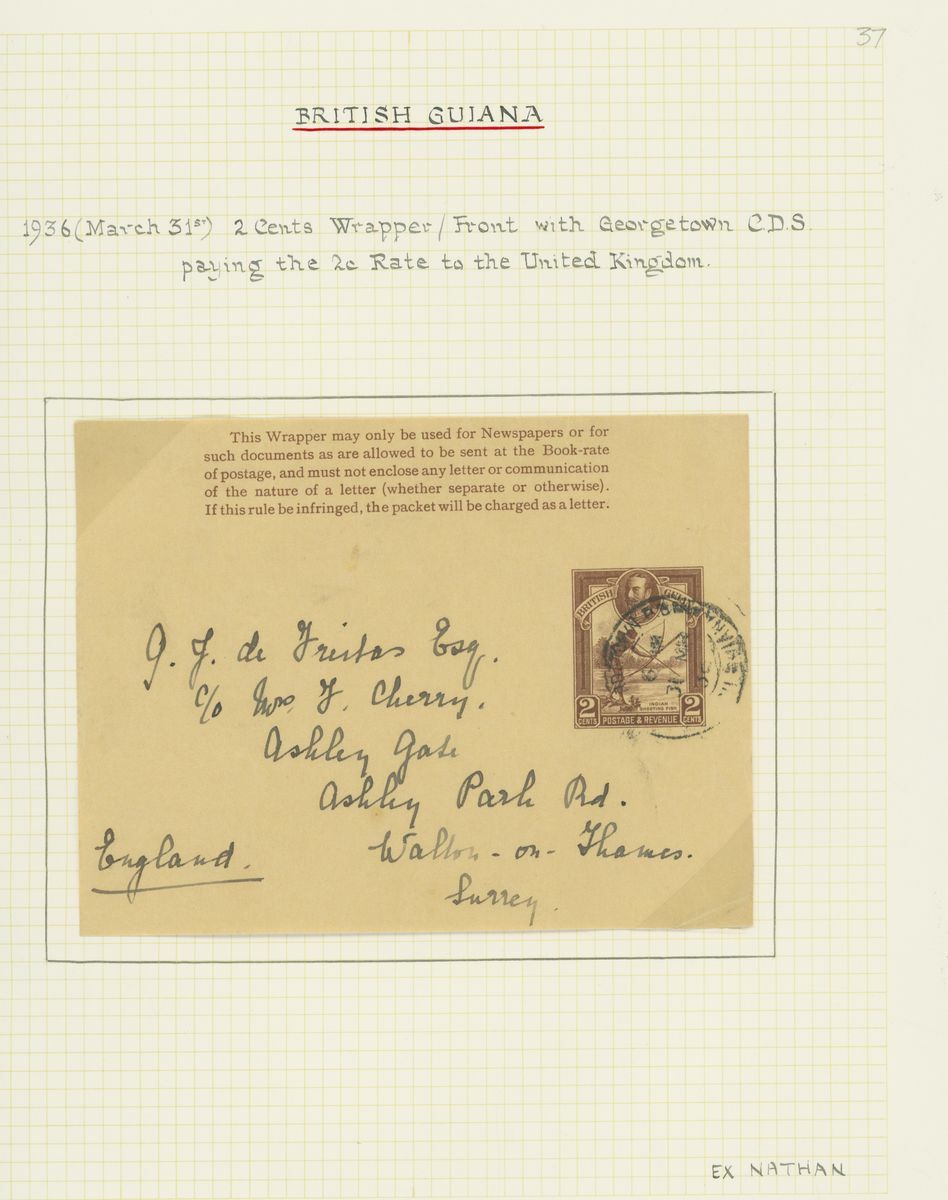 37
BRITISH GUIANA
1936 (March 31st) 2 Cents Wrapper / Front with Georgetown C.D.S.
paying the 2c Rate to the United Kingdom.
This Wrapper may only be used for Newspapers or for
such documents as are allowed to be sent at the Book-rate
of postage, and must not enclose any letter or communication
of the nature of a letter (whether separate or otherwise).
If this rule be infringed, the packet will be charged as a letter.
BRITISH GUIANA
INDIAN
SHOOTING FISH
2 CENTS POSTAGE & REVENUE 2 CENTS
J. de Freitas Esq.
c/o Mrs. F. Cherry.
Ashley Gate
Ashley Park Rd.
Walton-on-Thames.
England.
Surrey.
EX NATHAN